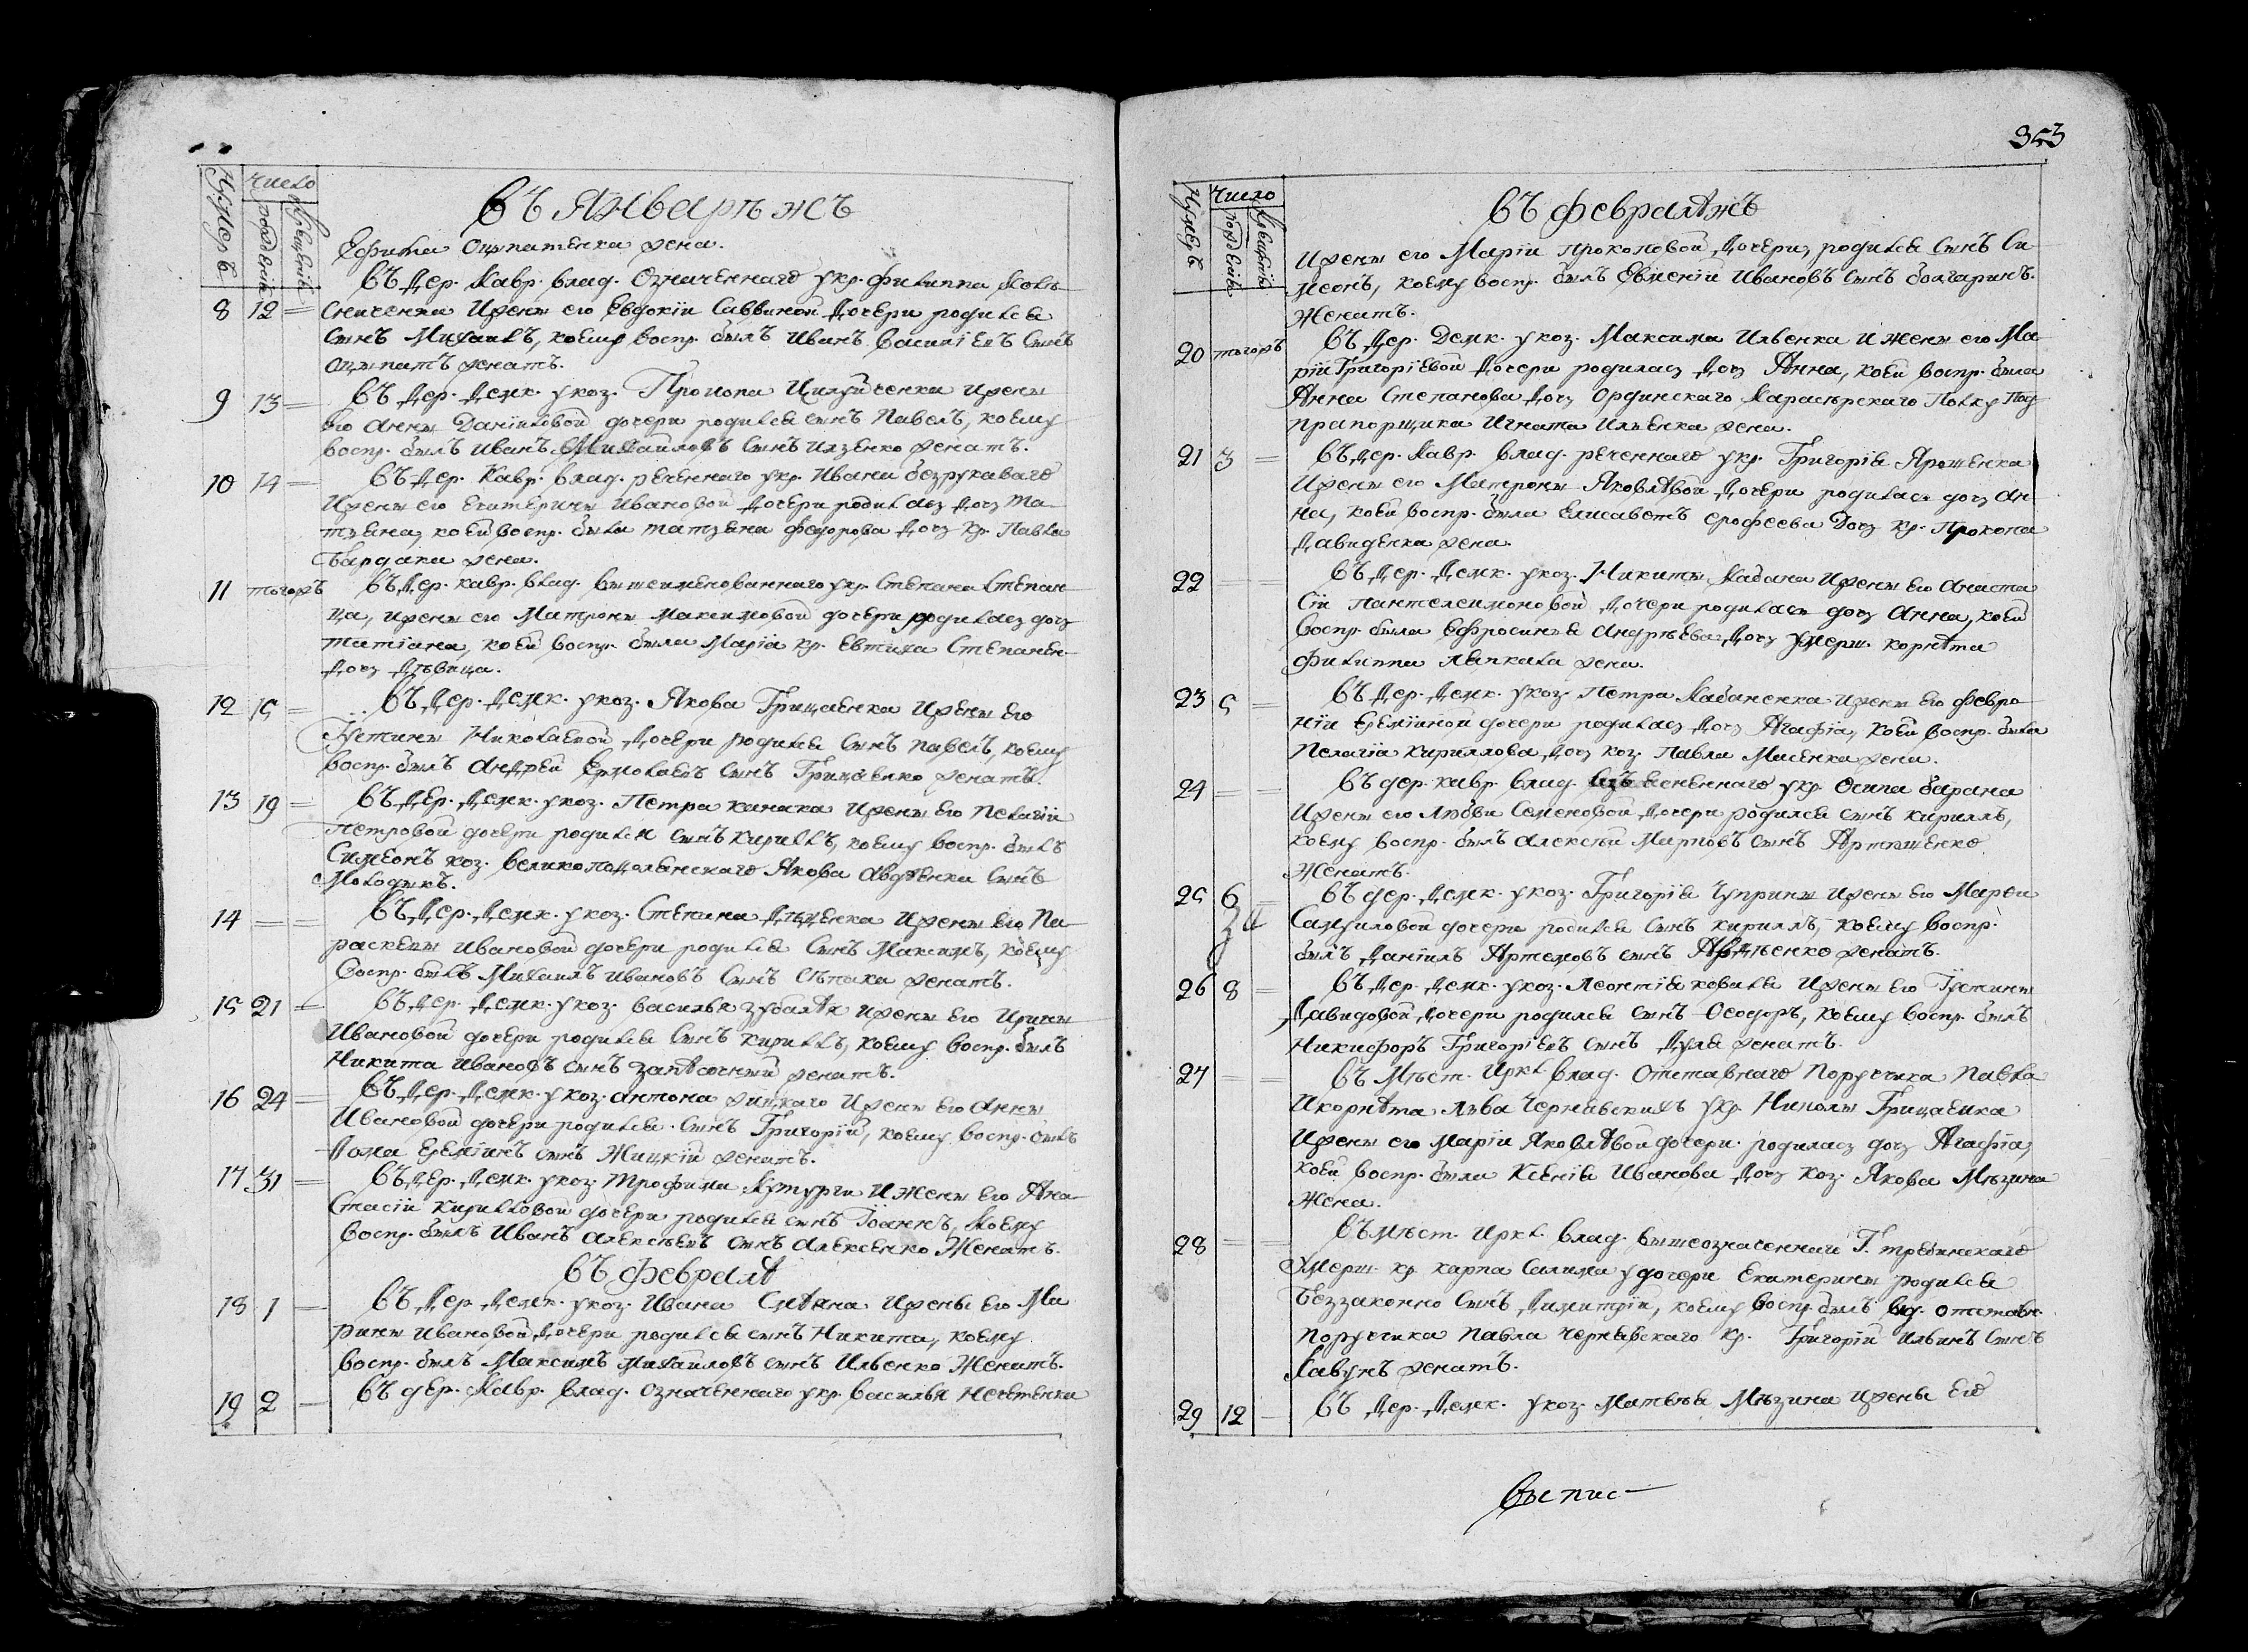 Нумеръ
Число
рожденiя
крещенiя
въ Январѣ жъ
Ефима Оцупатенка жена.
8 12 = въ дер. Кавр. влад. Означеннаго у кр. Филиппа
сниченка и жены его Евдокiи Саввиной дочери родился
сынъ Михаилъ, коему воспр. былъ Иванъ Василiевъ сынъ
женатъ.
9 13 = въ дер. Демк. у коз. Прокопа и жены
его Анны Данiиловой дочери родился сынъ Павелъ, коему
воспр. былъ Иванъ Михайловъ сынъ женатъ.
10 14 = въ дер. Кавр. влад. реченнаго у кр. Ивана Безрукаваго
и жены его Екатерины Ивановой дочери родилась дочь Та-
тьяна, коей воспр. была Татьяна Федорова дочь кр. Павла
Бардака жена.
11 тогожъ въ дер. Кавр. влад. вышеименованнаго у кр. Степана Степан-
ца, и жены его Матроны Максимовой дочери родилась дочь
Татiана, коей воспр. была Марiа кр. Евтиха Степанен-
дочь дѣвица.
12 15 = въ дер. Демк. у коз. Якова Грицаенка и жены его
Iустины Николаевой дочери родился сынъ Павелъ, коему
воспр. былъ Андрей Ермолаевъ сынъ Грицаенко женатъ.
13 19 = въ дер. Демк. у коз. Петра Канака и жены его Пелагiи
Петровой дочери родился сынъ Кириллъ, коему воспр. былъ
Симеонъ коз. великоподолянскаго Якова Авдѣенка сынъ
Молодикъ.
14 = = въ дер. Демк. у коз. Степана и жены его Па
раскевы Ивановой дочери родился сынъ Максимъ, коему
воспр. былъ Михаилъ Ивановъ сынъ женатъ.
15 21 = въ дер. Демк. у коз. Василья Зубалѣя и жены его Ирины
Ивановой дочери родился сынъ Кириллъ, коему воспр. былъ
Никита Ивановъ сынъ женатъ.
16 24 = въ дер. Демк. у коз. Антона Жицкаго и жены его Анны
Ивановой дочери родился сынъ Григорiй, коему воспр. былъ
Еремiинъ сынъ Жицкiй женатъ.
17 31 = въ дер. Демк. у коз. Трофима Кутурги и жены его Ана-
стасiи Кирилловой дочери родился сынъ Iоаннъ, коему
воспр. былъ Иванъ Алексѣевъ сынъ Алексенко женатъ.
въ Февралѣ
18 1 — въ дер. Демк. у коз. Ивана и жены его Ма
рины Ивановой дочери родился сынъ Никита, коему
воспр. былъ Максимъ Михайловъ сынъ Ильенко женатъ.
19 2 — въ дер. Кавр. влад. означеннаго у кр. Василья
353
Нумеръ
Число
рожденiя
крещенiя
въ Февралѣ жъ
и жены его Марiи Прокоповой дочери, родился сынъ Си
меонъ, коему воспр. былъ Евменiй Ивановъ сынъ Болгаринъ.
женатъ.
20 тогожъ въ дер. Демк. у коз. Максима Ильенка и жены его Ма-
рiи Григорiевой дочери родилась дочь Анна, коей воспр. была
Анна Степанова дочь Ординскаго Карасѣрскаго Полку Под
прапорщика Игната Ильенка жена.
21 3 = въ дер. Кавр. влад. реченнаго у кр. Григорiя Ярошенка
и жены его Матроны Яковлѣвой дочери родилась дочь Ан
на, коей воспр. была Елисаветъ Ерофеева дочь кр. Прокопа
Давиденка жена.
22 = = въ дер. Демк. у коз. Никиты Кабана и жены его Анаста
сiи Пантелеимоновой дочери родилась дочь Анна, коей
воспр. была Ефросинья Андрѣева дочь умерш. корнѣта
Филиппа жена.
23 5 = въ дер. Демк. у коз. Петра Кабаненка и жены его Февро
нiи Еремiиной дочери родилась дочь Агафiа, коей воспр. была
Пелагiа Кириллова дочь коз. Павла Мисенка жена.
24 = = въ дер. Кавр. влад. у кр. Осипа Барана
и жены его Любви Семеновой дочери родился сынъ Кириллъ,
коему воспр. былъ Алексѣй Марковъ сынъ Артюшенко
женатъ.
25 6 = въ дер. Демк. у коз. Григорiя Чуприны и жены его Марfы
Самуиловой дочери родился сынъ Кириллъ, коему воспр.
былъ Данiилъ Артемовъ сынъ Авдѣенко женатъ.
26 8 = въ дер. Демк. у коз. Леонтiя Коваля и жены его Iустины
Давидовой дочери родился сынъ Ѳеодоръ, коему воспр. былъ
Никифоръ Григорiевъ сынъ Дуля женатъ.
27 = = въ мѣст. Иркл. влад. отставнаго Порутчика Павла
и корнѣта Льва Чернявскихъ у кр. Николы Грицаенка
и жены его Марiи Яковлѣвой дочери родилась дочь Агафiа,
коей воспр. была Ксенiя Иванова дочь коз. Якова Мѣзина
жена.
28 = = въ мѣст. Иркл. влад. вышеозначеннаго Г. Требинскаго
умерш. кр. Карпа Салима у дочери Екатерины родился
беззаконно сынъ Димитрiй, коему воспр. былъ вл. отставн.
порутчика Павла Чернявскаго кр. Григорiй Ильинъ сынъ
Кавунъ женатъ.
29 12 — въ дер. Демк. у коз. Матвѣя Мѣзина и жены его